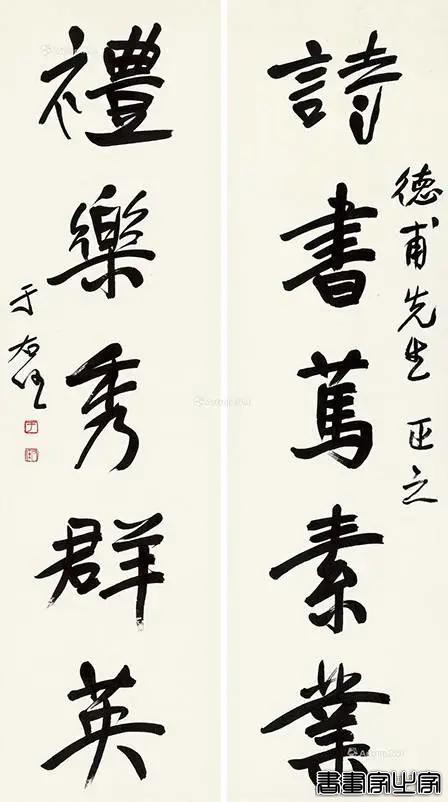 詩書萬素業
德甫先生 正之
禮樂秀群英
于右任
書畫家出字